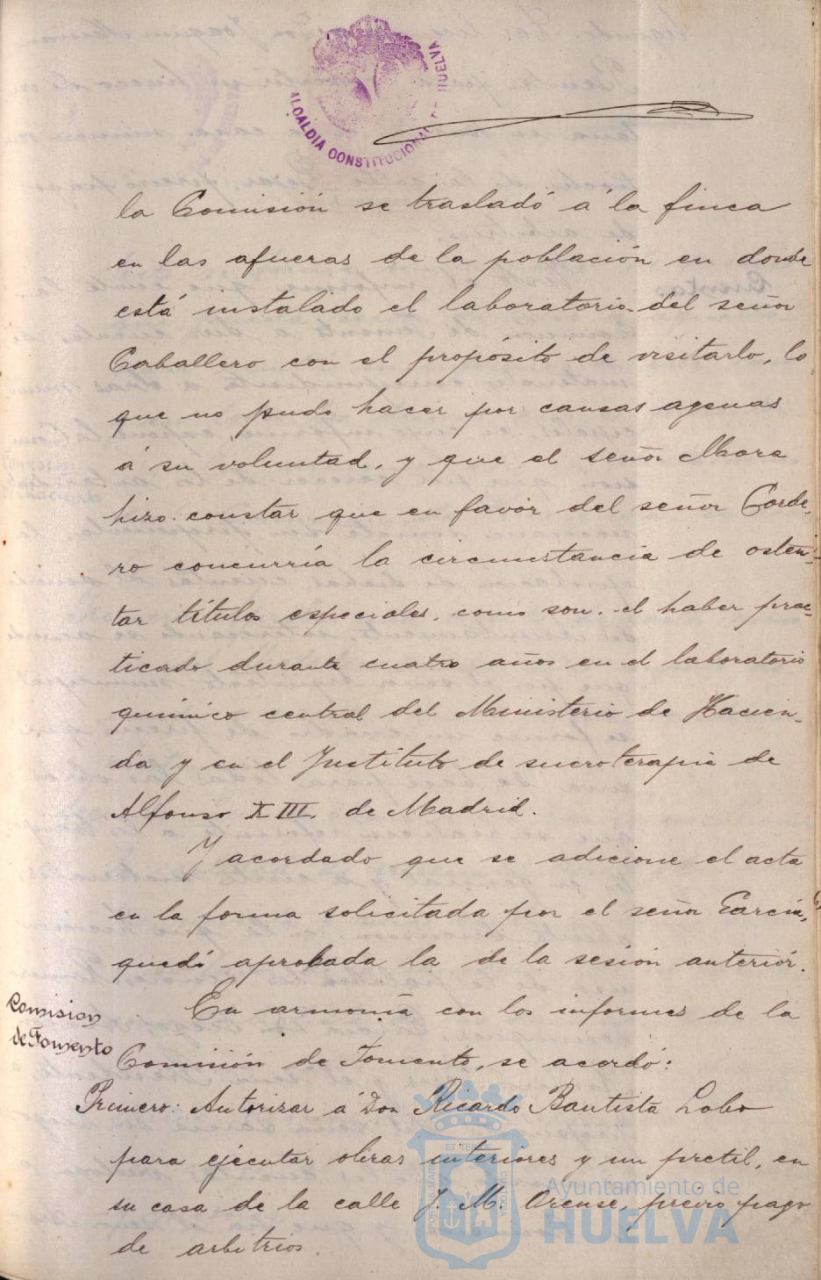 ALCALDIA CONSTITUCIONAL HUELVA
la Comisión se trasladó á la finca
en las afueras de la población en donde
está instalado el laboratorio del señor
Caballero con el propósito de visitarlo, lo
que no pudo hacer por causas agenas
á su voluntad, y que el señor Mora
hizo constar que en favor del señor Corde-
ro concurría la circunstancia de osten-
tar títulos especiales, como son: el haber prac-
ticado durante cuatro años en el laboratorio
químico central del Ministerio de Hacien-
da y en el Instituto de sueroterapia de
Alfonso XIII de Madrid.
Y acordado que se adicione el acta
en la forma solicitada por el señor García,
quedó aprobada la de la sesión anterior.
Comision
de Fomento
En armonía con los informes de la
Comisión de Fomento, se acordó:
Primero: Autorizar á Don Ricardo Bautista Lobo
para ejecutar obras interiores y un pretil, en
su casa de la calle J. M. Orense, previo pago
de arbitrios.
Ayuntamiento de
HUELVA